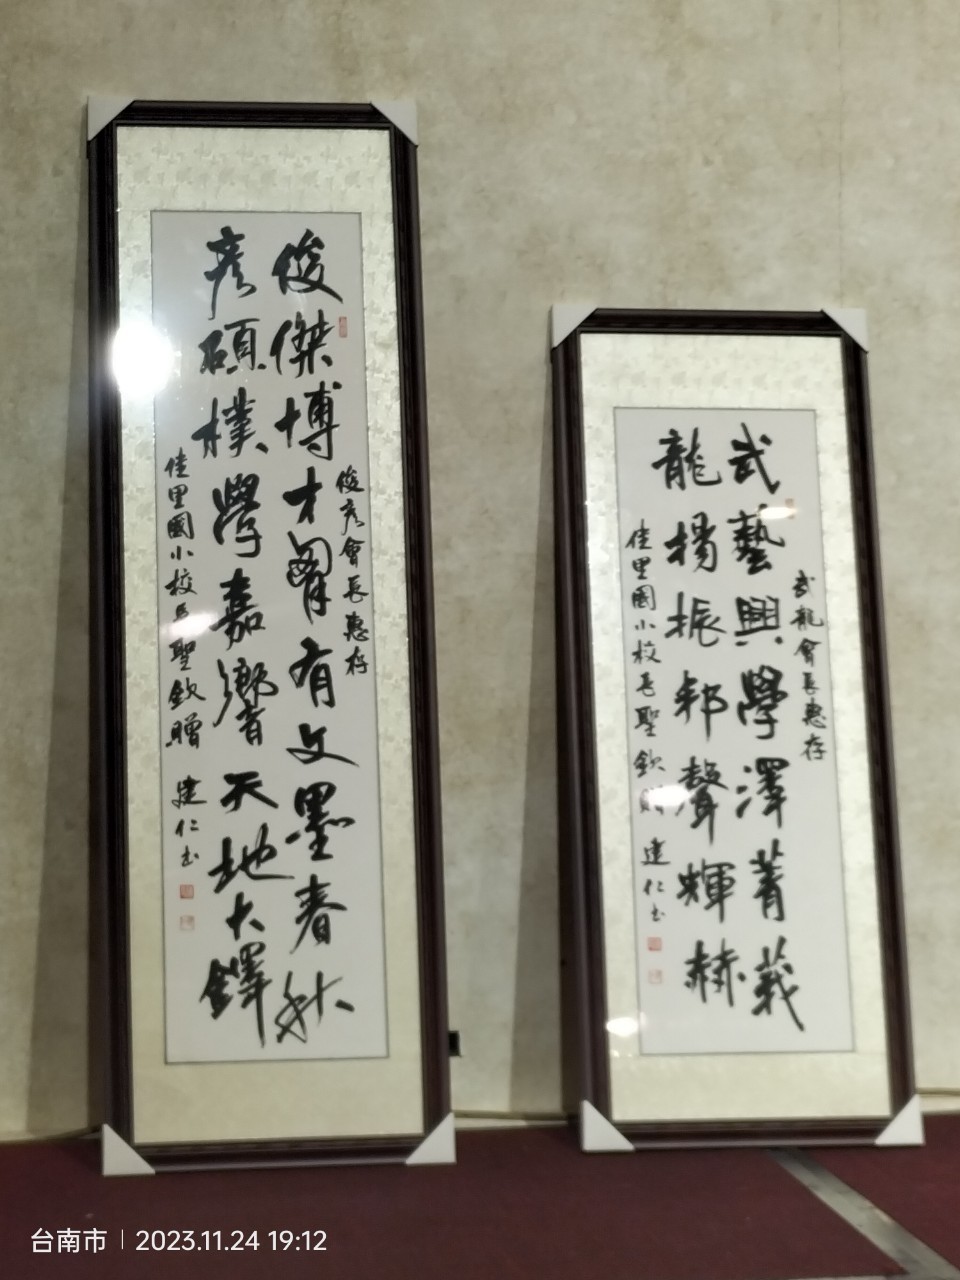 俊彥會長惠存
俊傑博才胸有文墨春秋
彥碩樸學嘉響天地大鐸
佳里國小校長聖欽贈 建仁書
武龍會長惠存
武藝興學澤菁莪
龍揚振邦聲輝赫
佳里國小校長聖欽贈 建仁書
台南市 | 2023.11.24 19:12